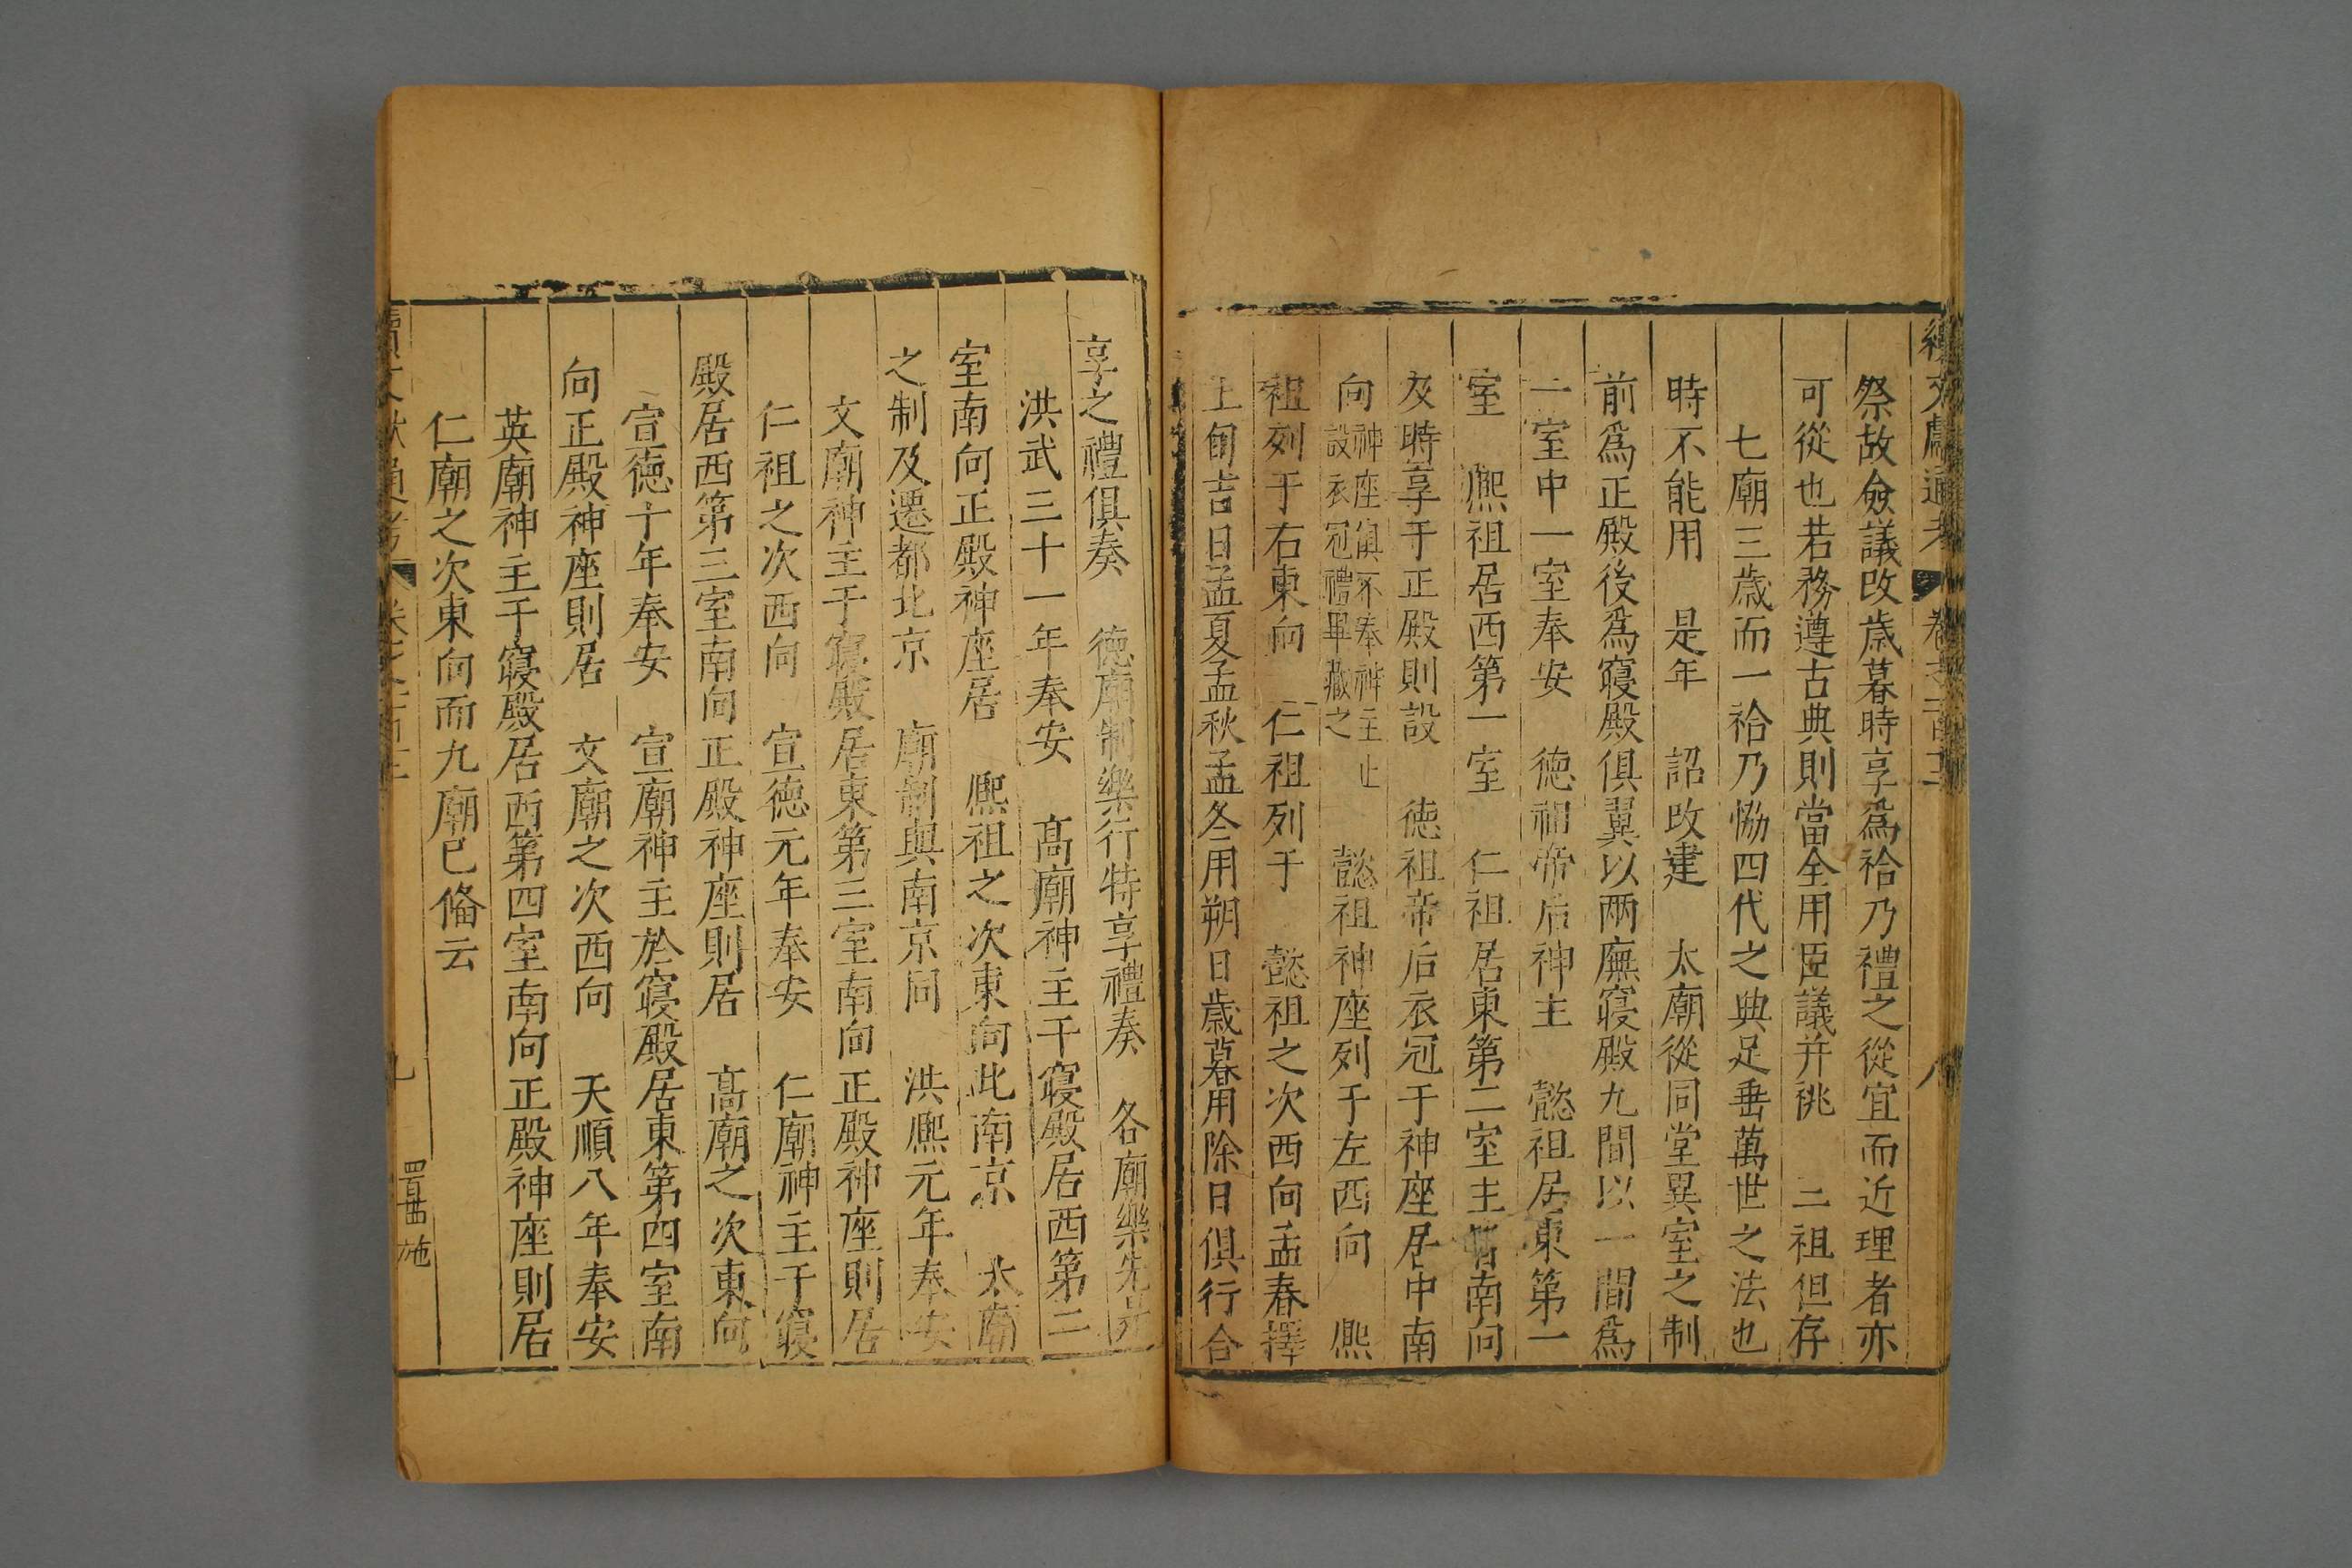 續文獻通考 卷之
祭故僉議改歲暮時享爲祫乃禮之從宜而近理者亦
可從也若務遵古典則當全用臣議并祧 二祖但存
七廟三歲而一祫乃恊四代之典足垂萬世之法也
時不能用 是年 詔改建 太廟從同堂異室之制
前爲正殿後爲寢殿俱翼以兩廡寢殿九間以一間爲
一室中一室奉安 德祖帝后神主 懿祖居東第一
室 熈祖居西第一室 仁祖居東第二室主皆南向
及時享于正殿則設 德祖帝后衣冠于神座居中南
向神座俱不奉神主止設衣冠禮畢藏之 懿祖神座列于左西向 熈
祖列于右東向 仁祖列于 懿祖之次西向孟春擇
上旬吉日孟夏孟秋孟冬用朔日歲暮用除日俱行合
享之禮俱奏 德廟制樂行特享禮奏 各廟樂先是
洪武三十一年奉安 髙廟神主于寢殿居西第二
室南向正殿神座居 熈祖之次東向此南京 太廟
之制及遷都北京 廟制與南京同 洪熈元年奉安
文廟神主于寢殿居東第三室南向正殿神座則居
仁祖之次西向 宣德元年奉安 仁廟神主于寢
殿居西第三室南向正殿神座則居 髙廟之次東向
宣德十年奉安 宣廟神主於寢殿居東第四室南
向正殿神座則居 文廟之次西向 天順八年奉安
英廟神主于寢殿居西第四室南向正殿神座則居
仁廟之次東向而九廟已俻云